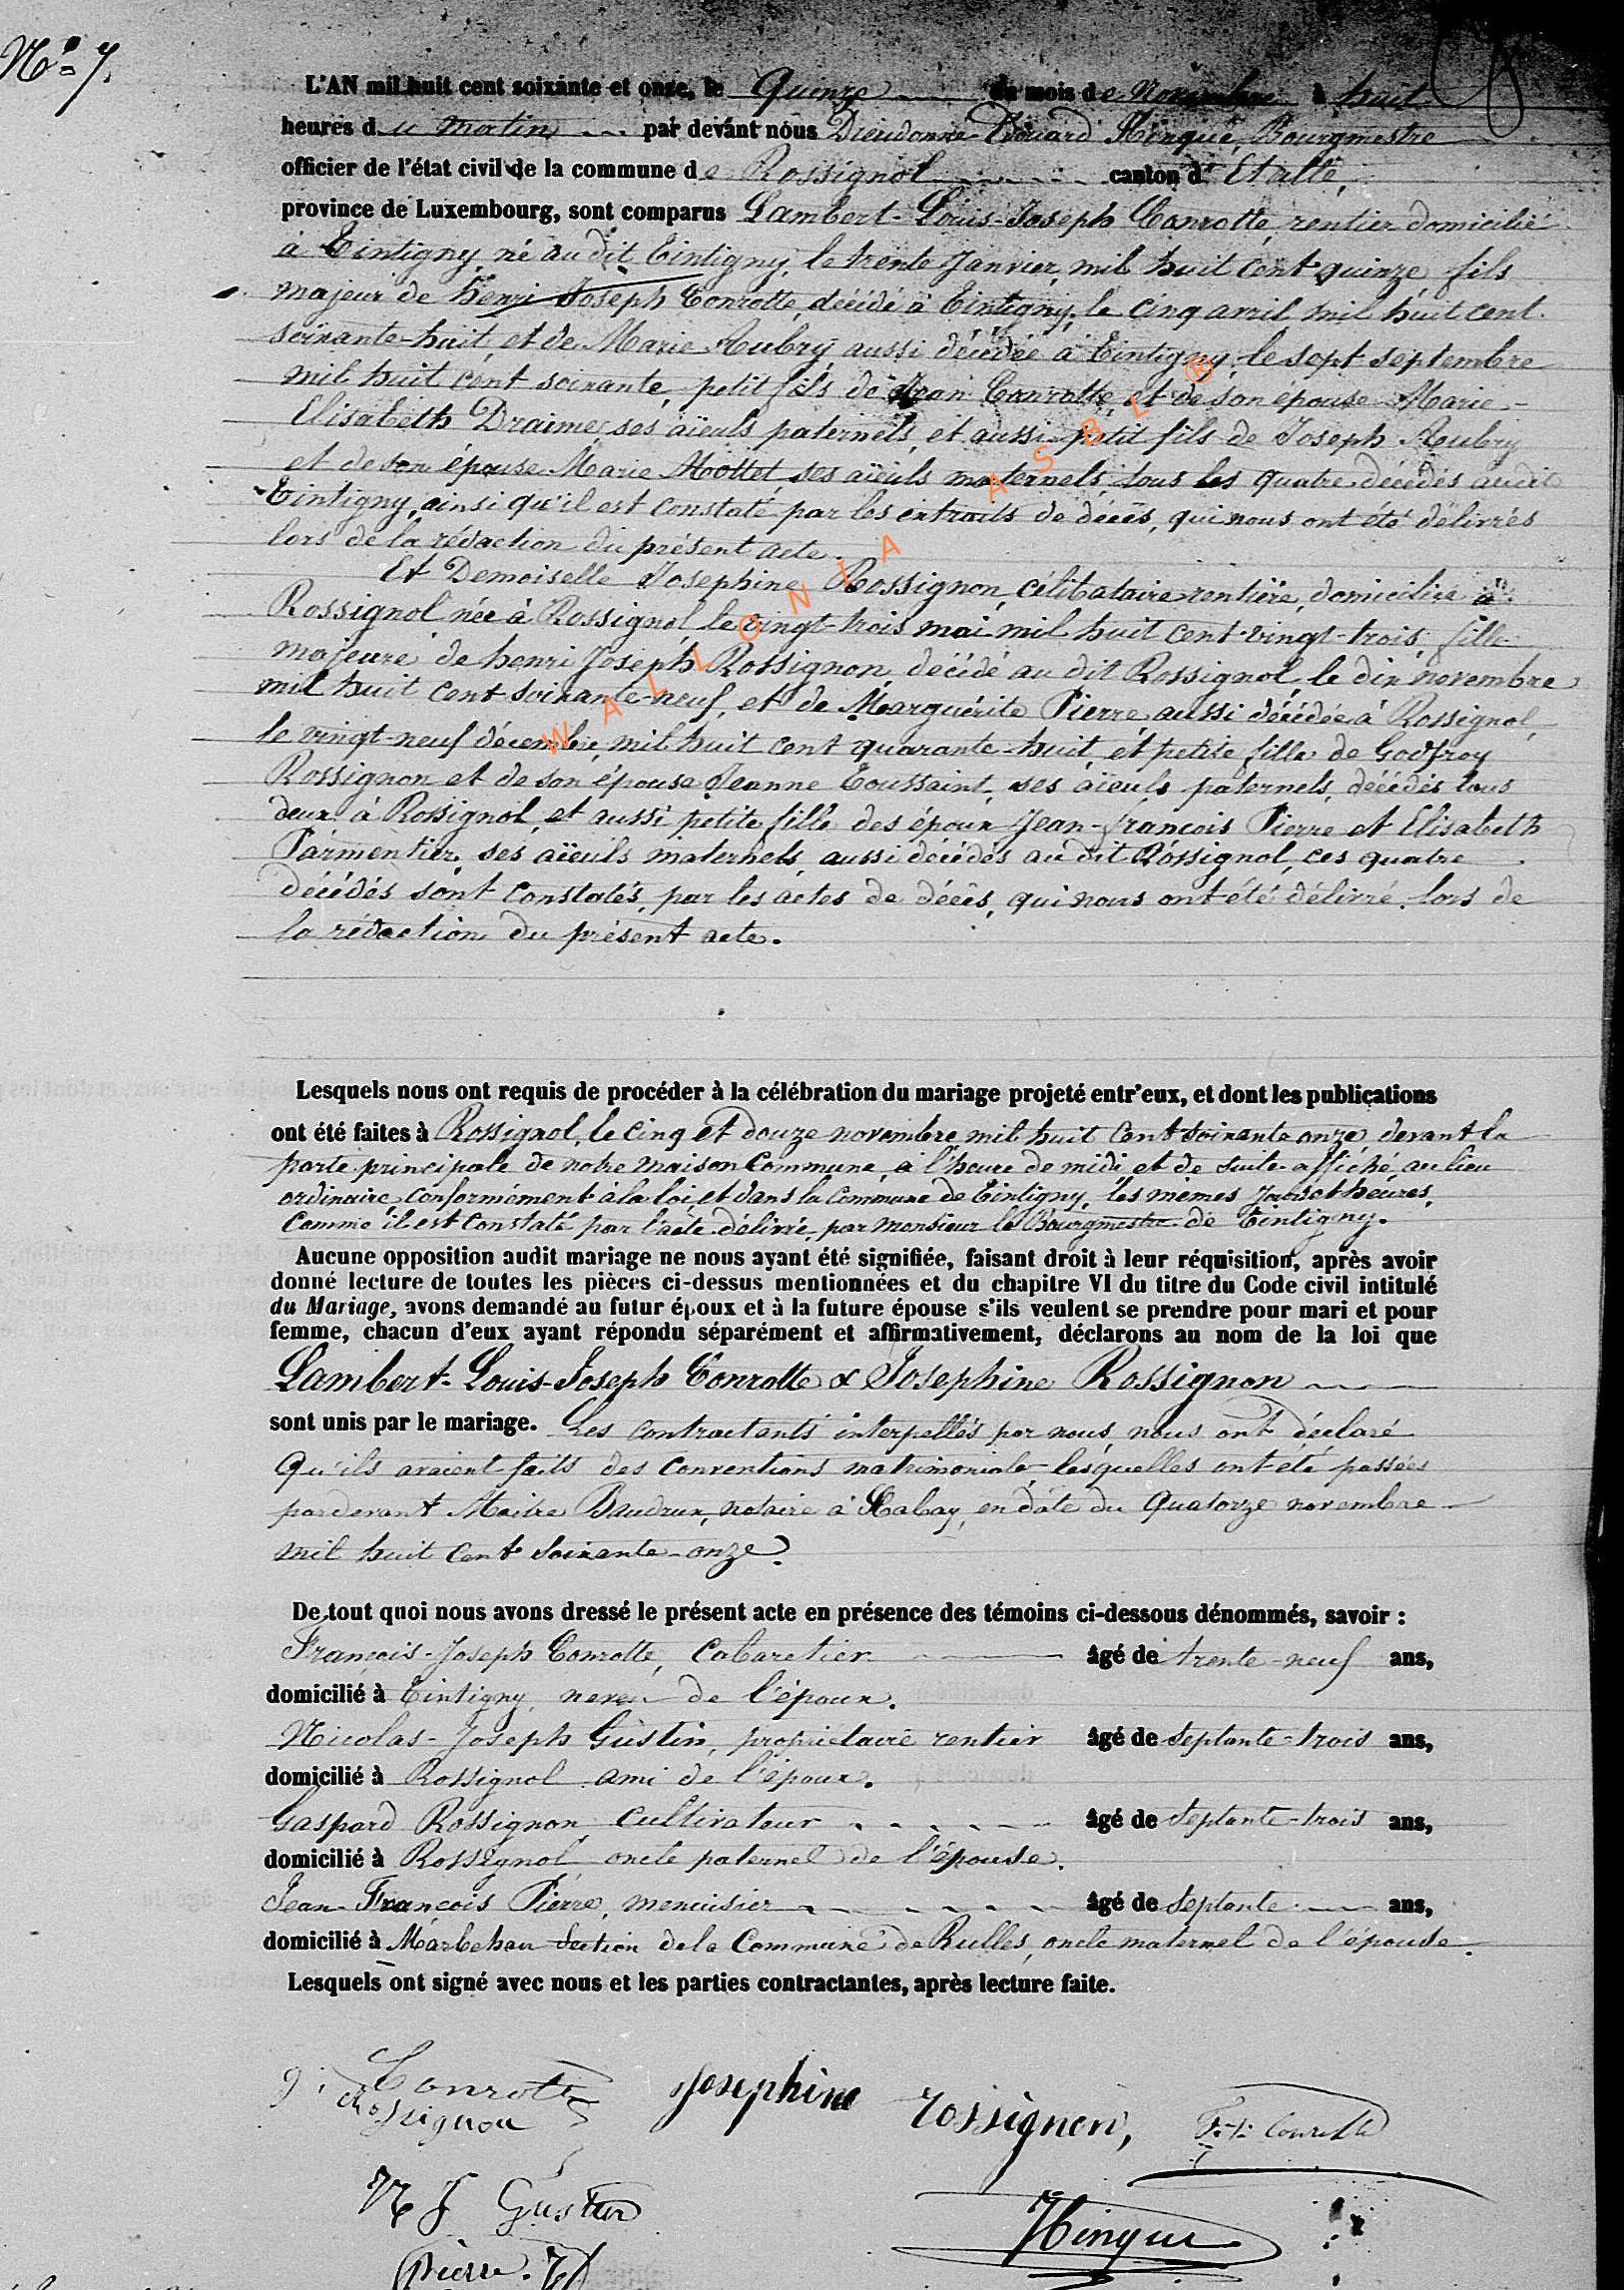 N.o 7.
L'AN mil huit cent soixante et onze, le Quinze du mois de Novembre à huit
heures du matin par devant nous Dieudonné Edouard Hinque, Bourgmestre
officier de l'état civil de la commune de Rossignol canton d' Etalle,
province de Luxembourg, sont comparus Lambert-Louis-Joseph Conrotte, rentier domicilié
à Tintigny, né au dit Tintigny, le trente Janvier, mil huit cent quinze, fils
majeur de Henri Joseph Conrotte, décédé à Tintigny, le cinq avril mil huit cent
soixante-huit, et de Marie Aubry, aussi décédée à Tintigny, le sept septembre
mil huit cent soixante, petit fils de Jean Conrotte, et de son épouse Marie-
Elisabeth Draime, ses aïeuls paternels, et aussi petit fils de Joseph Aubry
et de son épouse Marie Mottet, ses aïeuls maternels, tous les quatre décédés audit
Tintigny, ainsi qu'il est constaté par les extraits de décès, qui nous ont été délivrés
lors de la rédaction du présent acte.
Et Demoiselle Josephine Rossignon, célibataire rentière, domiciliée à
Rossignol née à Rossignol le vingt-trois mai mil huit cent vingt-trois, fille
majeure de henri Joseph Rossignon, décédé au dit Rossignol, le dix novembre
mil huit cent soixante-neuf, et de Marguérite Pierre, aussi décédée à Rossignol,
le vingt-neuf décembre, mil huit cent quarante-huit, et petite fille de Godfroy
Rossignon et de son épouse Jeanne Toussaint, ses aïeuls paternels, décédés tous
deux à Rossignol, et aussi petite fille des époux Jean-françois Pierre et Elisabeth
Parmentier, ses aïeuls maternels, aussi décédés au dit Rossignol, ces quatre
décédés sont constatés, par les actes de décès, qui nous ont été délivré, lors de
la rédaction du présent acte.
WALLONIA ASBL ®
Lesquels nous ont requis de procéder à la célébration du mariage projeté entr'eux, et dont les publications
ont été faites à Rossignol, le cinq et douze novembre mil huit cent soixante onze, devant la
porte principale de notre maison Commune, à l'heure de midi et de suite affiché au lieu
ordinaire, conformément à la loi, et dans la Commune de Tintigny, les mêmes jours et heures,
Comme il est constaté par l'acte délivré, par monsieur le Bourgmestre de Tintigny.
Aucune opposition audit mariage ne nous ayant été signifiée, faisant droit à leur réquisition, après avoir
donné lecture de toutes les pièces ci-dessus mentionnées et du chapitre VI du titre du Code civil intitulé
du Mariage, avons demandé au futur époux et à la future épouse s'ils veulent se prendre pour mari et pour
femme, chacun d'eux ayant répondu séparément et affirmativement, déclarons au nom de la loi que
Lambert-Louis-Joseph Conrotte & Josephine Rossignon
sont unis par le mariage. Les contractants interpellés par nous, nous ont déclaré
Qu'ils avaient faits des conventions matrimoniales, lesquelles ont été passées
pardevant Maitre Baudrux, notaire à Habay, en date du Quatorze novembre
mil huit cent soixante-onze.
De tout quoi nous avons dressé le présent acte en présence des témoins ci-dessous dénommés, savoir :
François-Joseph Conrotte, Cabaretier âgé de trente-neuf ans,
domicilié à Tintigny, neveu de l'époux.
Nicolas-Joseph Gustin, propriétaire rentier âgé de septante-trois ans,
domicilié à Rossignol ami de l'époux.
Gaspard Rossignon Cultivateur âgé de septante-trois ans,
domicilié à Rossignol oncle paternel de l'épouse.
Jean-François Pierre, menuisier âgé de septante ans,
domicilié à Marbehan Section de la Commune de Rulles, oncle maternel de l'épouse.
Lesquels ont signé avec nous et les parties contractantes, après lecture faite.
Conrotte Josephine rossignon, F.J. Conrotte
g. Rossignon
N J Gustin Hinque
Pierre. J f